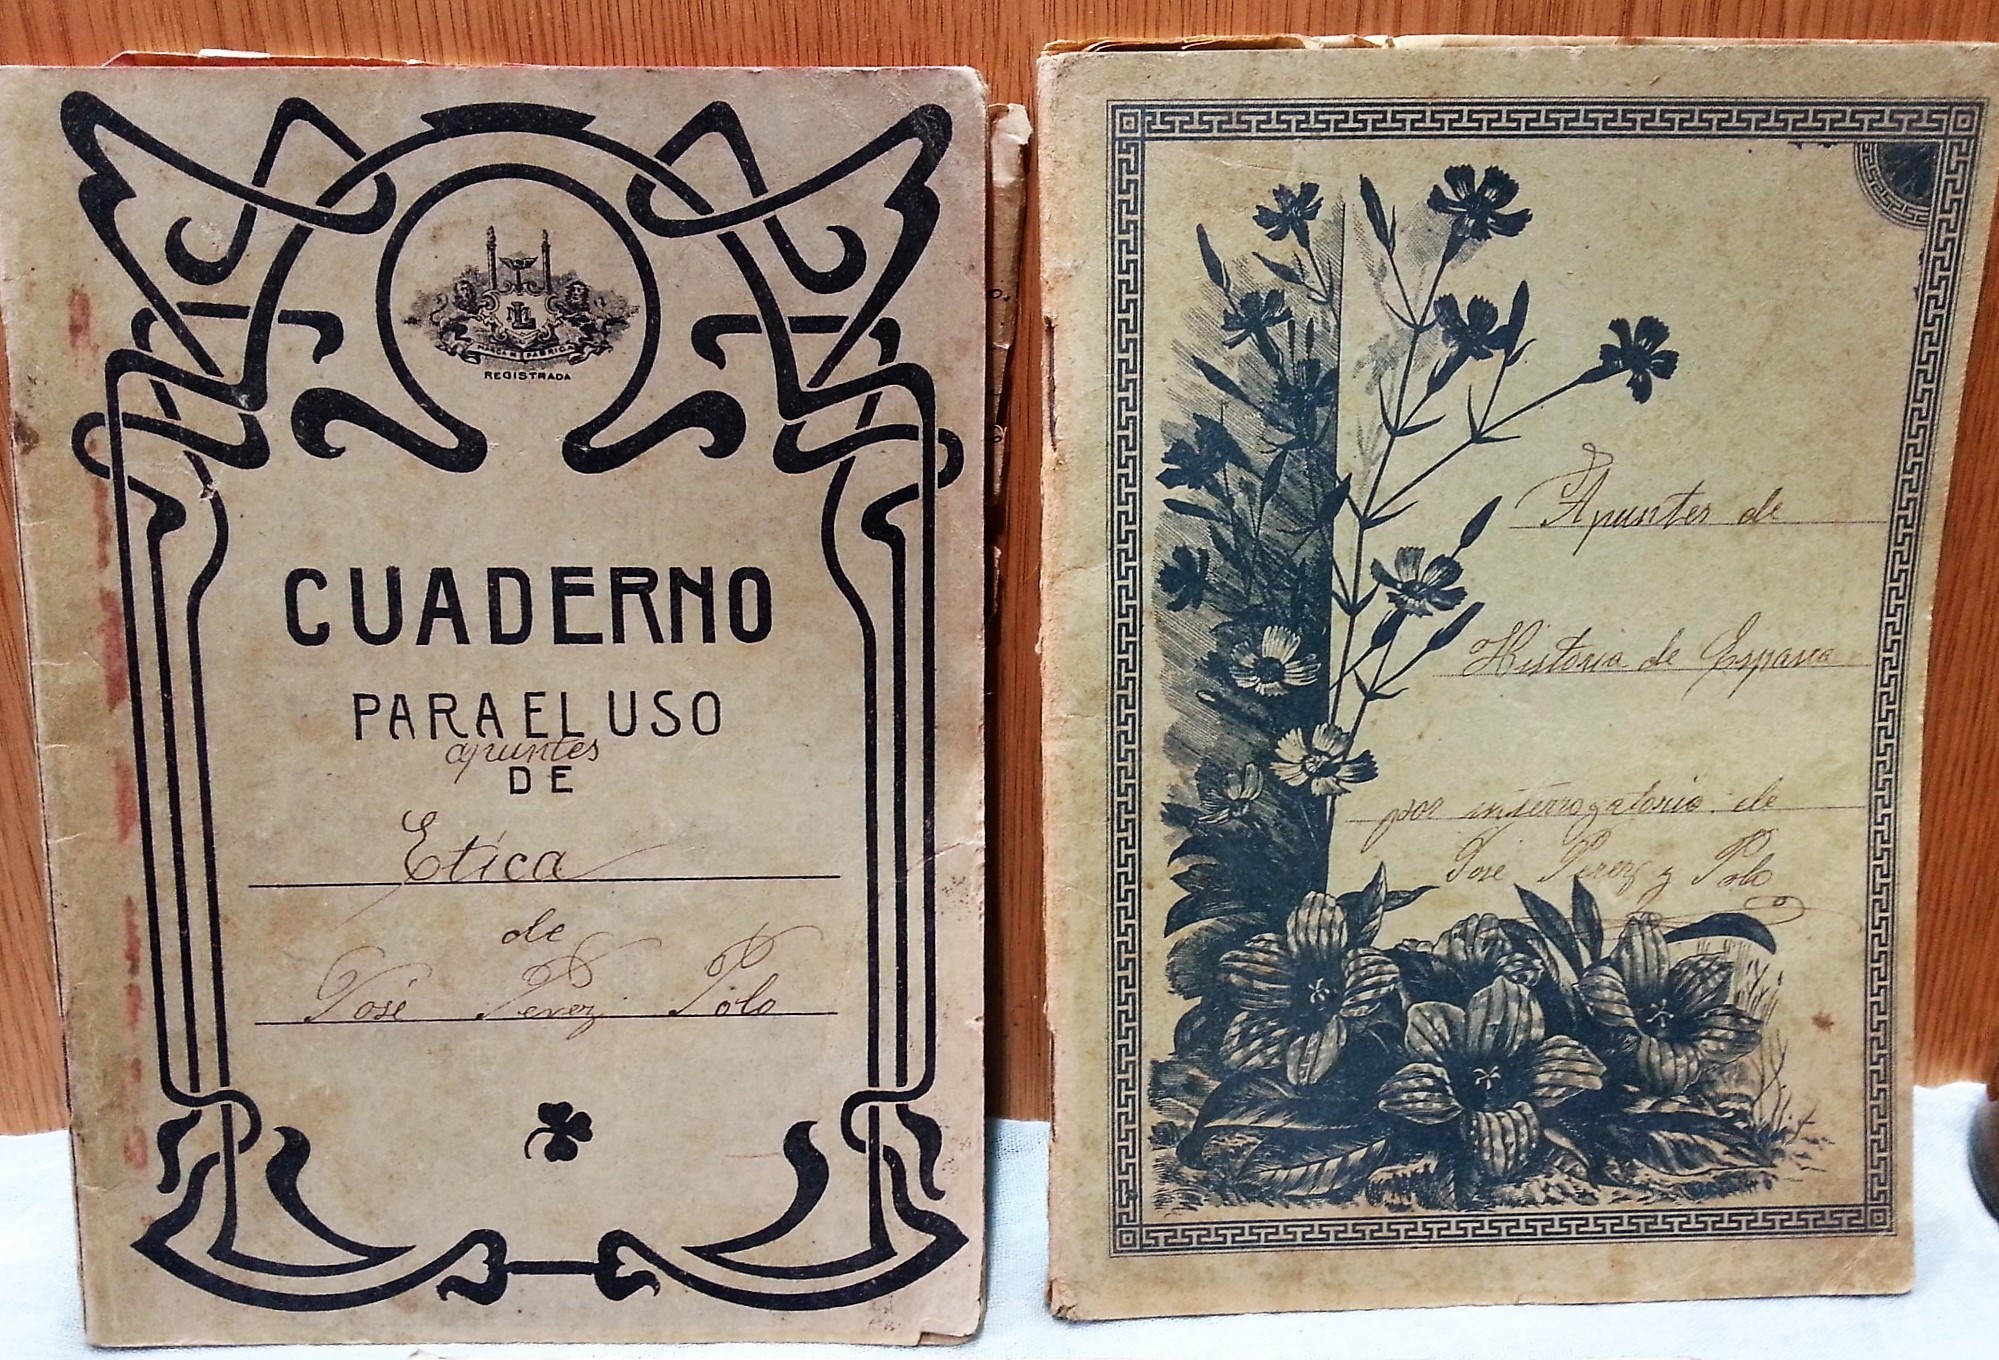 MARCA DE FABRICA
REGISTRADA
CUADERNO
PARA EL USO
apuntes
DE
Etica
de
José Perez Polo
Apuntes de
Historia de España
por interrogatorio de
José Perez y Polo